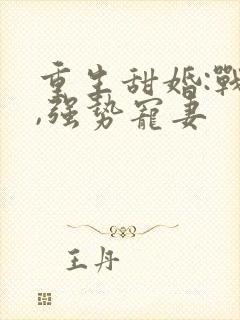 重生甜婚:戰
,强势寵妻
王丹